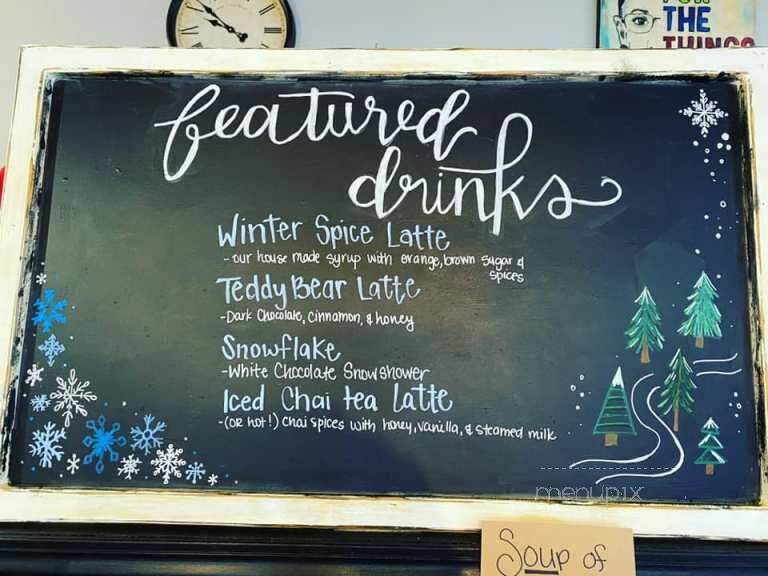 FOR
THE
THINGS
featured
drinks
Winter Spice Latte
- our house made syrup with orange, brown sugar &
spices
Teddy Bear Latte
-Dark Chocolate, cinnamon, & honey
Snowflake
-White Chocolate Snowshower
Iced Chai tea Latte
-(or hot!) Chai spices with honey, vanilla, & steamed milk
menupix
Soup of